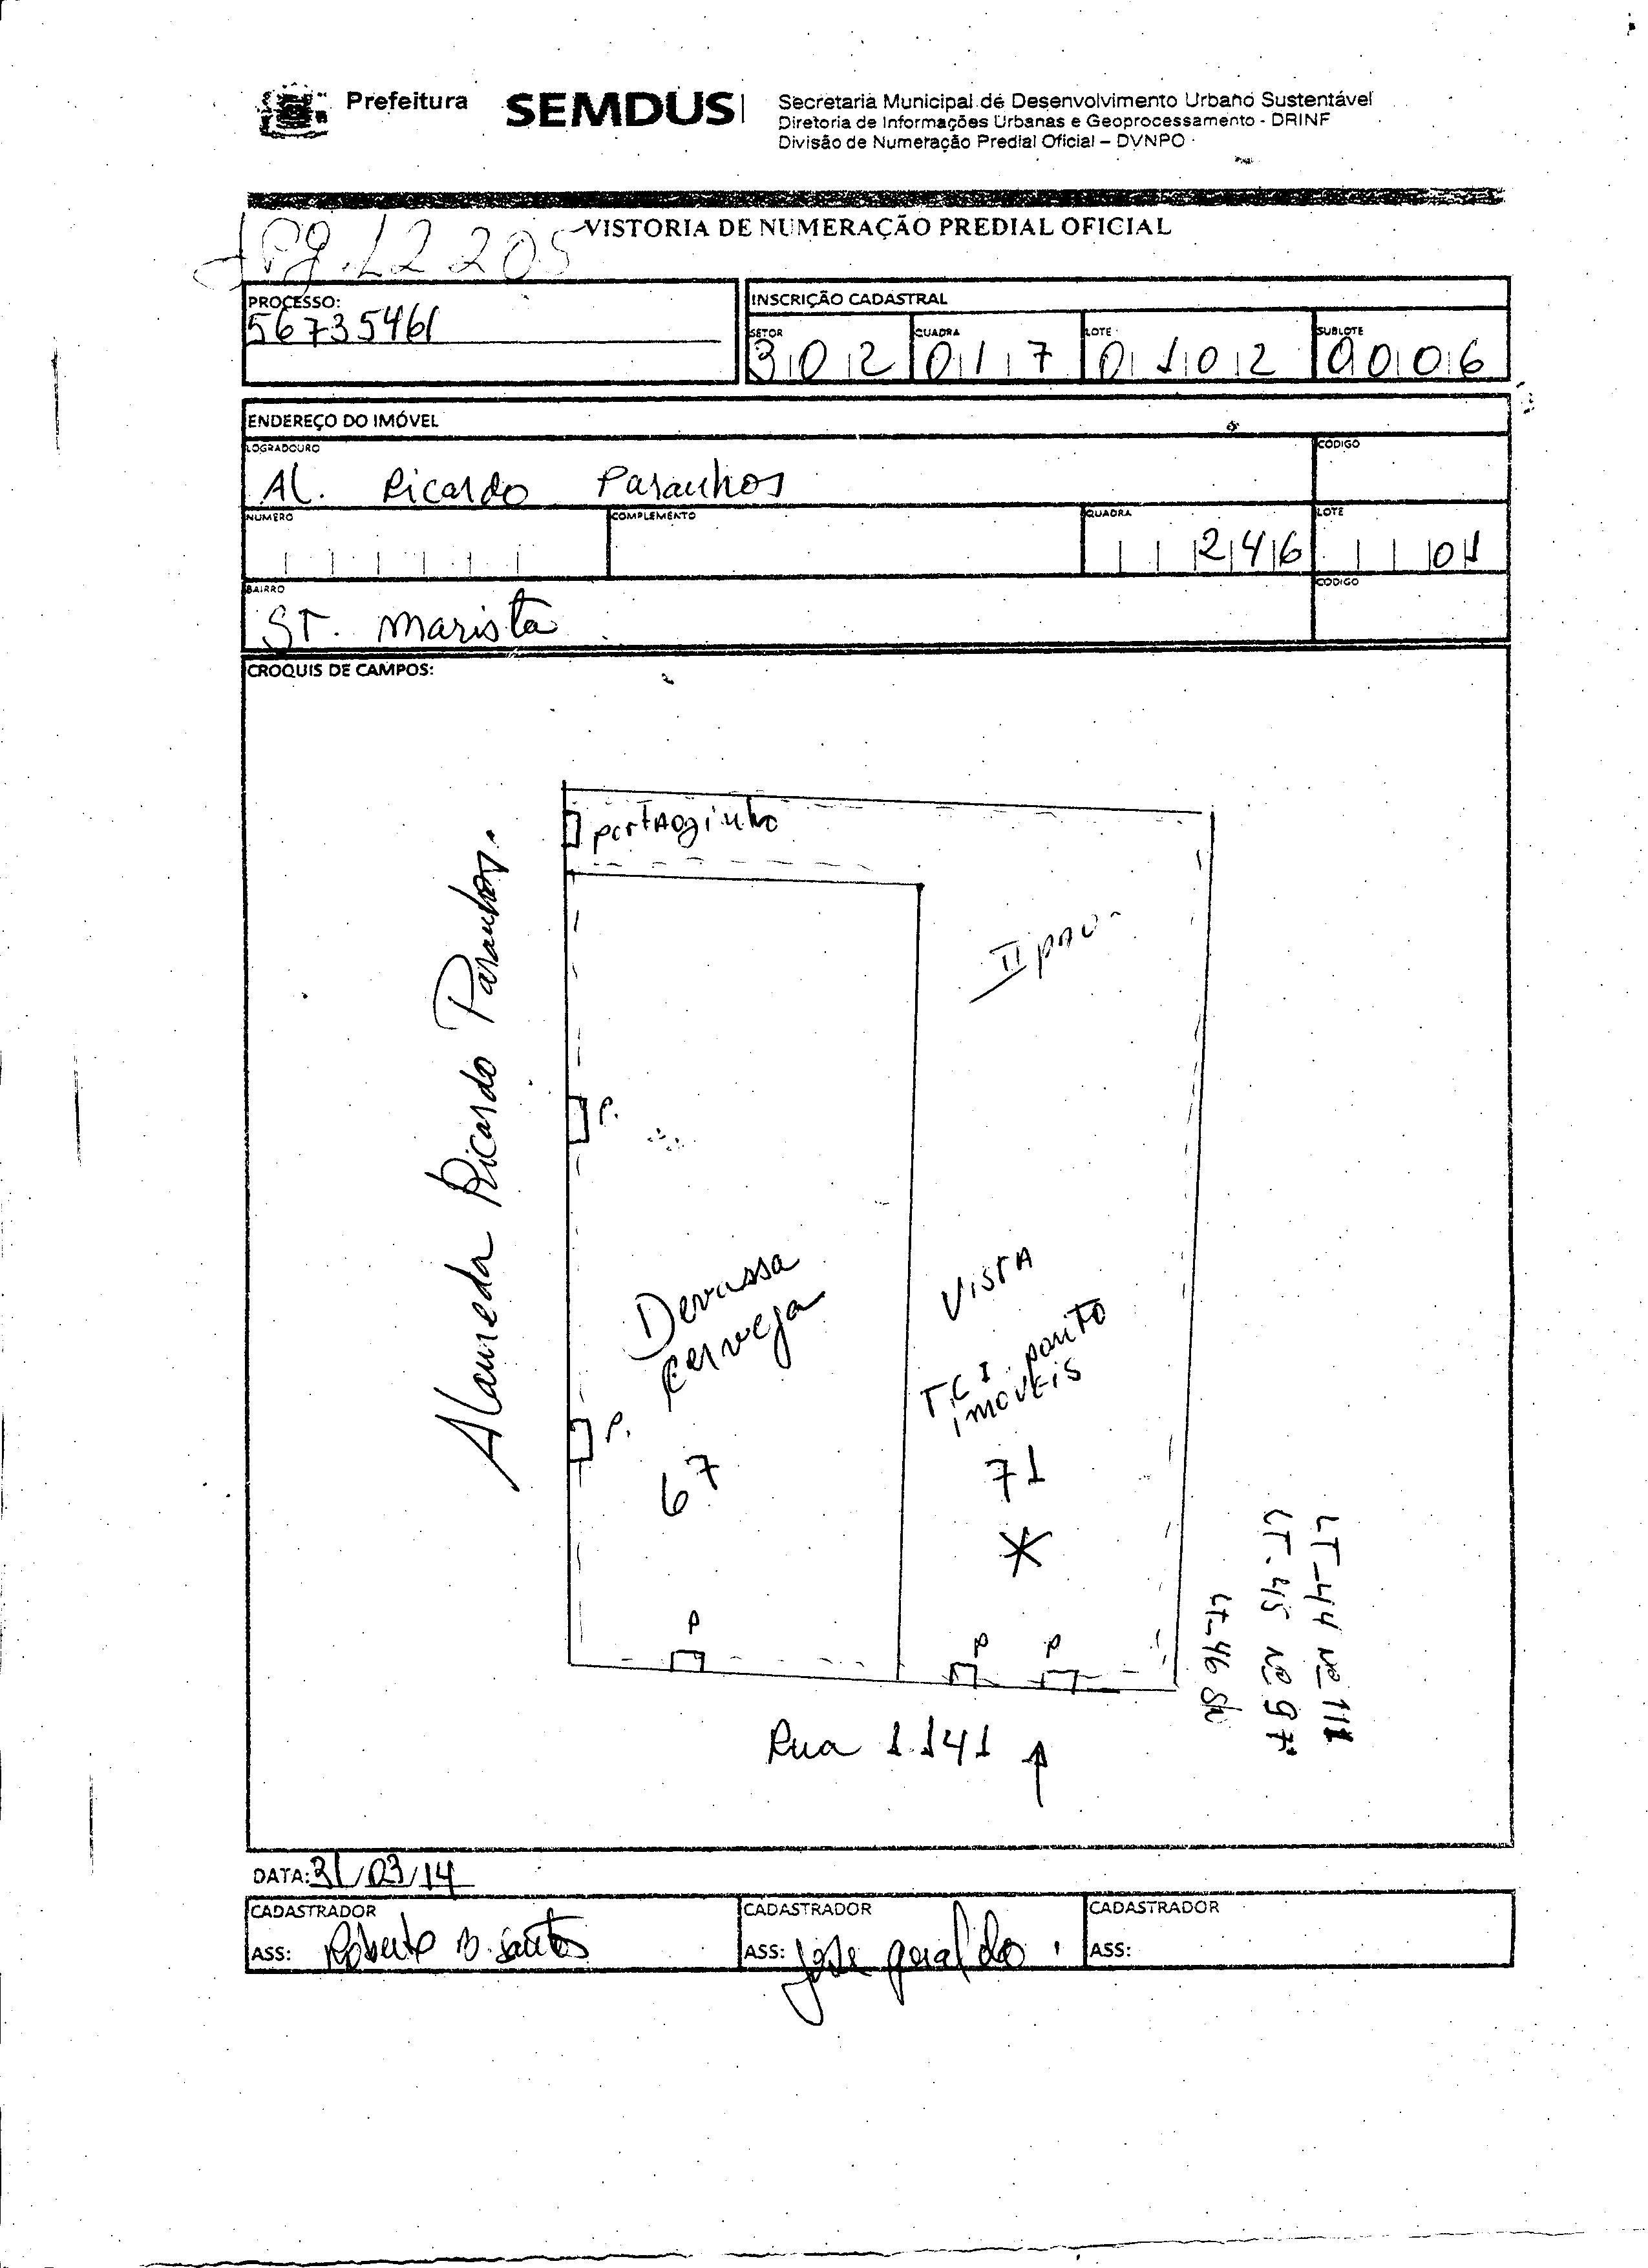 Prefeitura SEMDUS
Secretaria Municipal de Desenvolvimento Urbano Sustentável
Diretoria de Informações Urbanas e Geoprocessamento - DRINF
Divisão de Numeração Predial Oficial – DVNPO
VISTORIA DE NUMERAÇÃO PREDIAL OFICIAL
PROCESSO:
56735461
INSCRIÇÃO CADASTRAL
SETOR QUADRA LOTE SUBLOTE
302 017 0102 0006
ENDEREÇO DO IMÓVEL
LOGRADOURO CODIGO
Al. Ricardo Paranhos
NUMERO COMPLEMENTO QUADRA LOTE
246 01
BAIRRO CODIGO
ST. Marista
CROQUIS DE CAMPOS:
portaozinho
II pav.
Alameda Ricardo Paranhos.
P.
Devassa
cerveja
VISTA
T.C.I. ponto
imoveis
P.
67
71
*
LT-44 Nº 111
LT-45 Nº 97
LT-46 SN
P
P P
Rua 1.141
DATA: 31/03/14
CADASTRADOR CADASTRADOR CADASTRADOR
ASS: Roberto B. Santos ASS: Jose geraldo ASS: